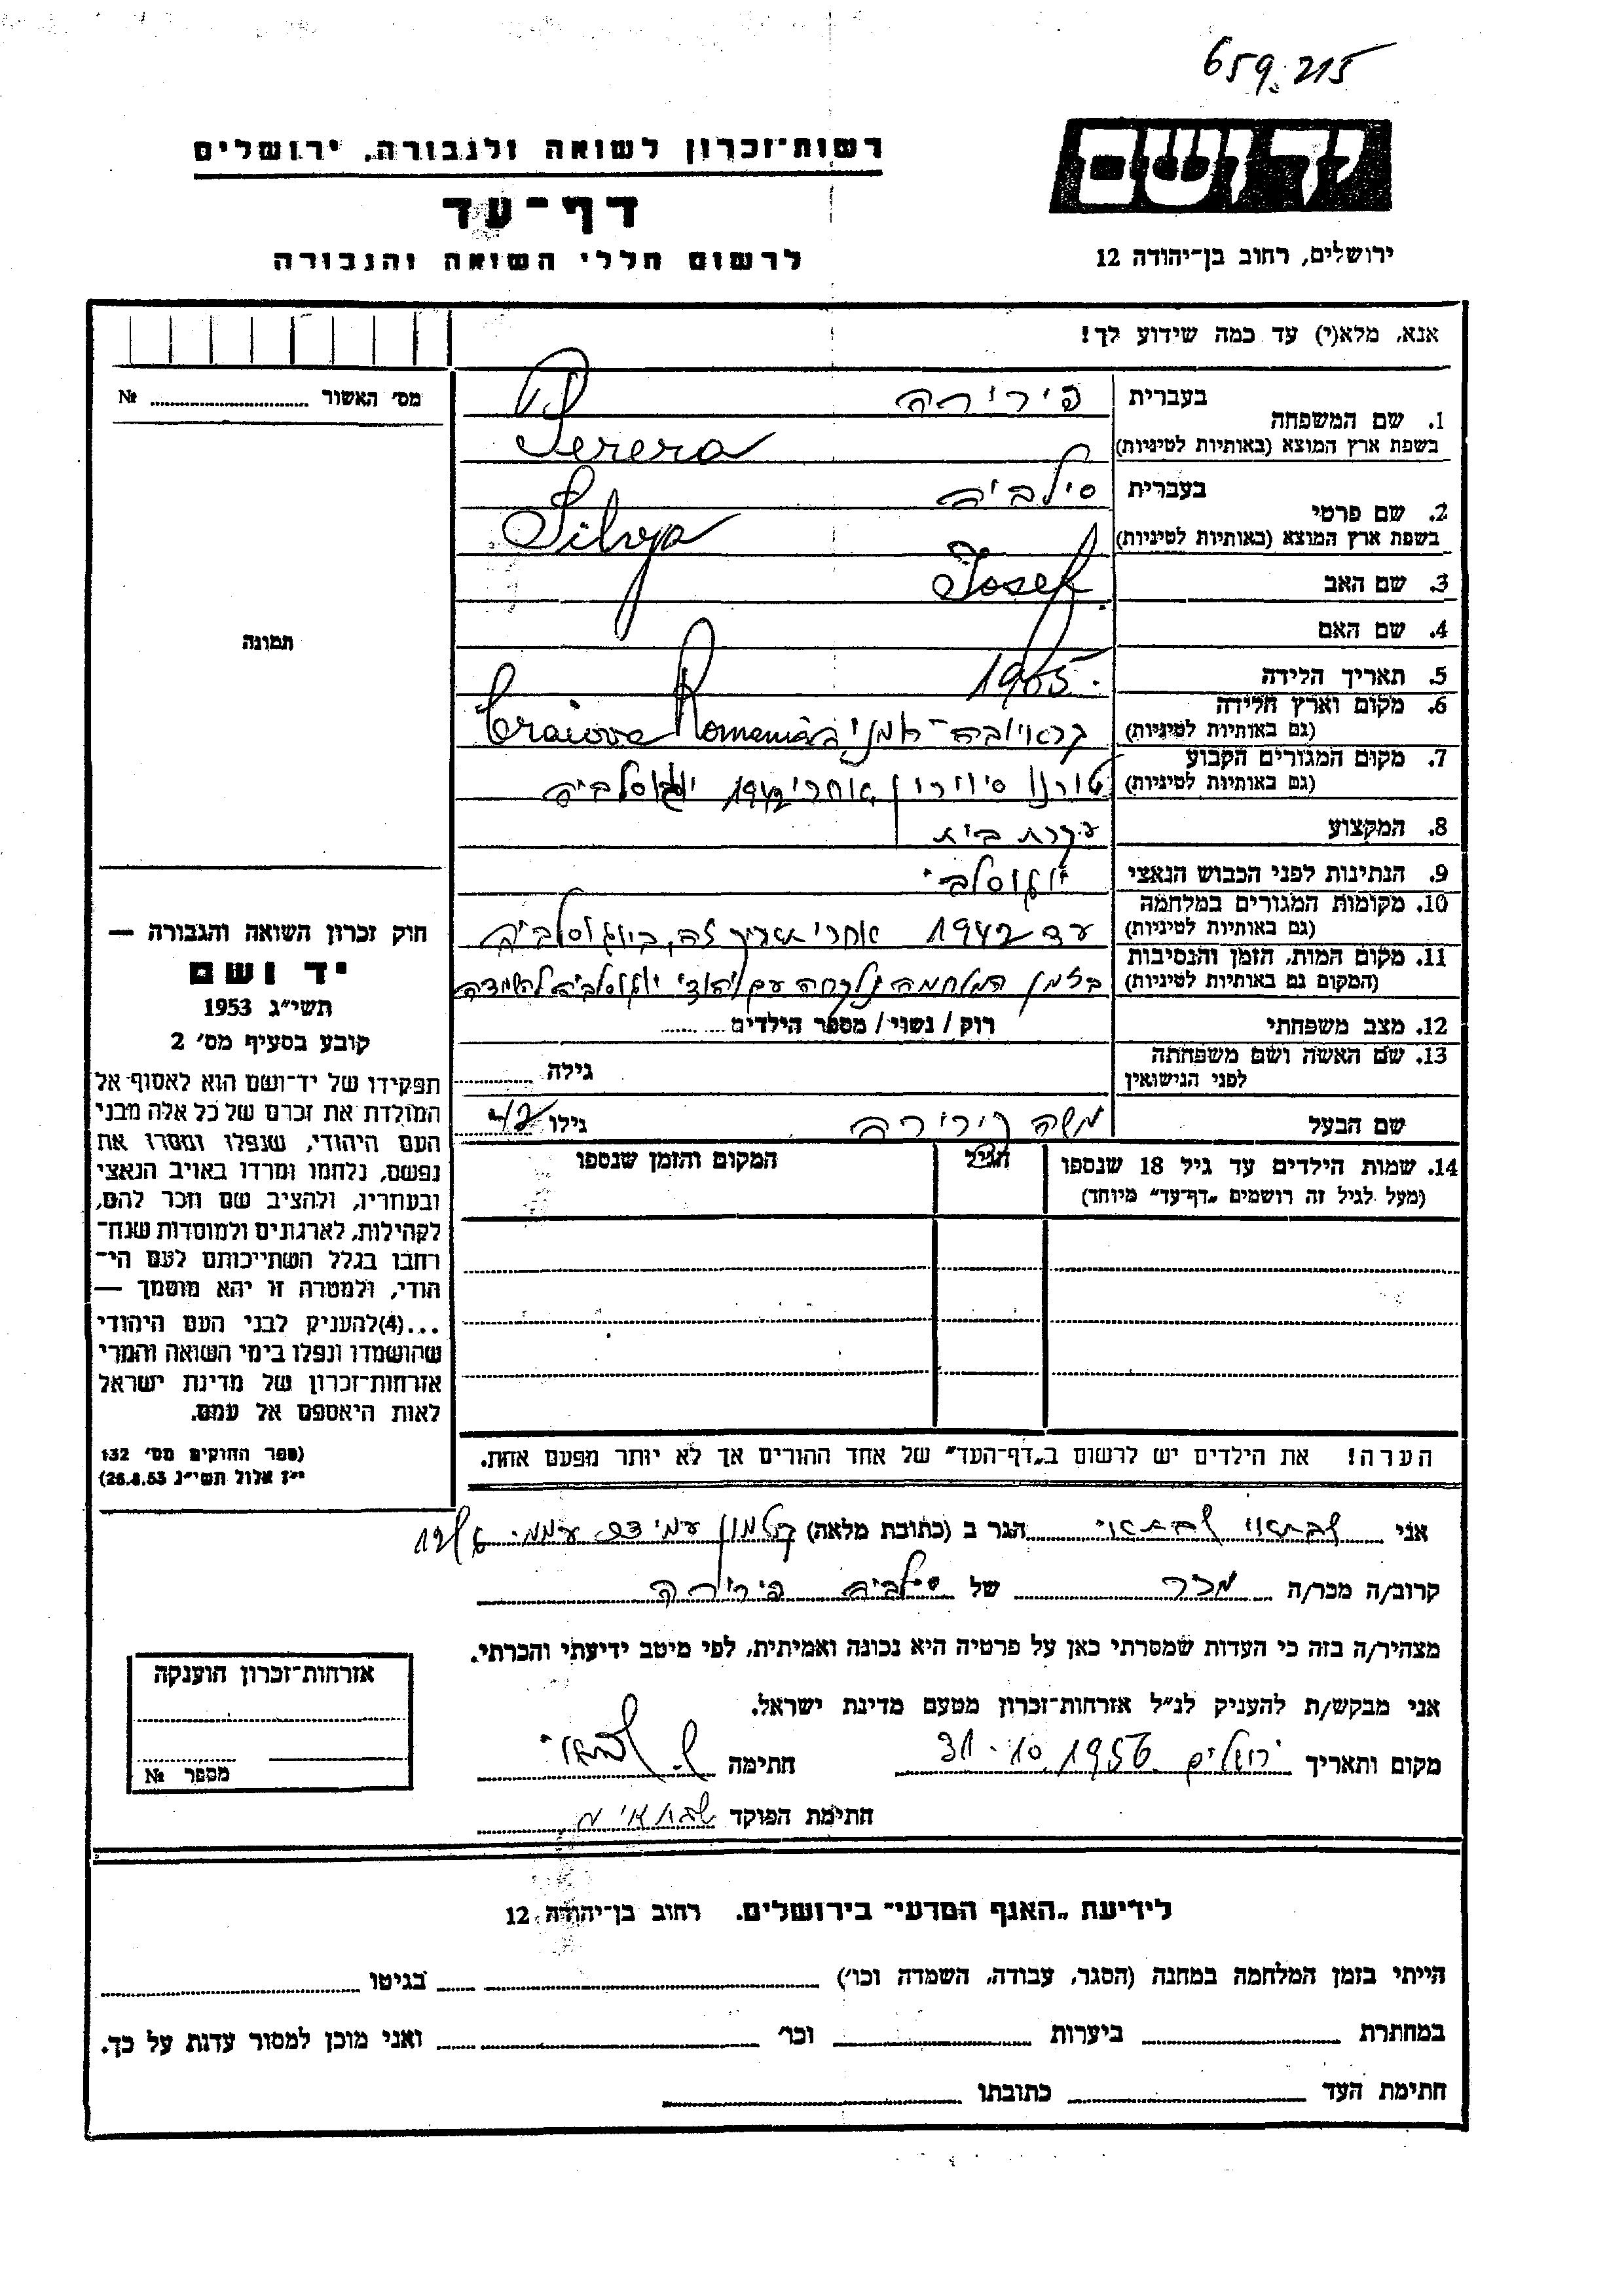 659.215
רשות־זכרון לשואה ולגבורה, ירושלים
יד ושם
דף־עד
לרשום חללי השואה והגבורה
ירושלים, רחוב בן־יהודה 12
אנא, מלא(י) עד כמה שידוע לך!
מס׳ האשור № ........
תמונה
1. שם המשפחה בעברית פירירה
בשפת ארץ המוצא (באותיות לטיניות) Perera
2. שם פרטי בעברית סילביה
בשפת ארץ המוצא (באותיות לטיניות) Silvya
3. שם האב Josef
4. שם האם
5. תאריך הלידה
6. מקום וארץ הלידה (גם באותיות לטיניות) קראיובה־רומניה Craiova Romania
7. מקום המגורים הקבוע (גם באותיות לטיניות) טורנו סיוירין אחרי 1942 יוגוסלביה
8. המקצוע עקרת בית
9. הנתינות לפני הכבוש הנאצי יוגוסלבי
10. מקומות המגורים במלחמה (גם באותיות לטיניות) עד 1942 אחרי תאריך זה, ביוגוסלביה
11. מקום המות, הזמן והנסיבות (המקום גם באותיות לטיניות) בזמן המלחמה נלקחה עם יהודי יוגוסלביה להשמדה
12. מצב משפחתי רוק / נשוי / מספר הילדים ........
13. שם האשה ושם משפחתה לפני הנישואין גילה ........
שם הבעל משה פירירה גילו 42
14. שמות הילדים עד גיל 18 שנספו (מעל לגיל זה רושמים „דף־עד” מיוחד) הגיל המקום והזמן שנספו
הערה! את הילדים יש לרשום ב„דף־העד” של אחד ההורים אך לא יותר מפעם אחת.
חוק זכרון השואה והגבורה —
יד ושם
תשי״ג 1953
קובע בסעיף מס׳ 2
תפקידו של יד־ושם הוא לאסוף אל
המולדת את זכרם של כל אלה מבני
העם היהודי, שנפלו ומסרו את
נפשם, נלחמו ומרדו באויב הנאצי
ובעוזריו, ולהציב שם וזכר להם,
לקהילות, לארגונים ולמוסדות שנח־
רבו בגלל השתייכותם לעם הי־
הודי, ולמטרה זו יהא מוסמך —
...(4)להעניק לבני העם היהודי
שהושמדו ונפלו בימי השואה והמרי
אזרחות־זכרון של מדינת ישראל
לאות היאספם אל עמם.
(ספר החוקים מס׳ 132
י״ז אלול תשי״ג 26.8.53)
אני שבתאי שבתאי הגר ב (כתובת מלאה) קטמון עמידר עממי
קרוב/ה מכר/ה מכר של סילביה פירירה
מצהיר/ה בזה כי העדות שמסרתי כאן על פרטיה היא נכונה ואמיתית, לפי מיטב ידיעתי והכרתי.
אני מבקש/ת להעניק לנ״ל אזרחות־זכרון מטעם מדינת ישראל.
מקום ותאריך ירושלים 31.10.1956 חתימה ש. שבתאי
חתימת הפוקד שבתאי מ.
אזרחות־זכרון הוענקה
מספר №
לידיעת „האגף המדעי” בירושלים. רחוב בן־יהודה 12
הייתי בזמן המלחמה במחנה (הסגר, עבודה, השמדה וכו׳) ........ בגיטו ........
במחתרת ........ ביערות ........ וכו׳ ........ ואני מוכן למסור עדות על כך.
חתימת העד ........ כתובתו ........